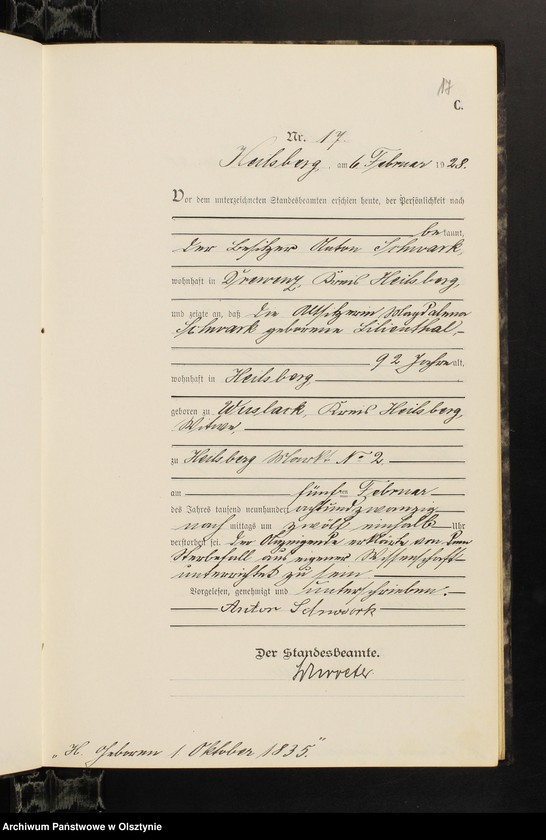 17
C.
Nr. 17.
Heilsberg, am 6 Februar 1928.
Vor dem unterzeichneten Standesbeamten erschien heute, der Persönlichkeit nach
bekannt,
der Besitzer Anton Schwark,
wohnhaft in Drewenz, Kreis Heilsberg,
und zeigte an, daß die Altsitzerin Magdalena
Schwark geborene Lilienthal,
92 Jahre alt,
wohnhaft in Heilsberg
geboren zu Wuslack, Kreis Heilsberg,
Witwe,
zu Heilsberg Markt No 2
am fünften Februar
des Jahres tausend neunhundert achtundzwanzig
nachmittags um zwölf einhalb Uhr
verstorben sei. Der Anzeigende erklärte von dem
Sterbefall aus eigener Wissenschaft
unterrichtet zu sein.
Vorgelesen, genehmigt und unterschrieben.
Anton Schwark
Der Standesbeamte.
"H. Geboren 1 Oktober 1835."
Archiwum Państwowe w Olsztynie